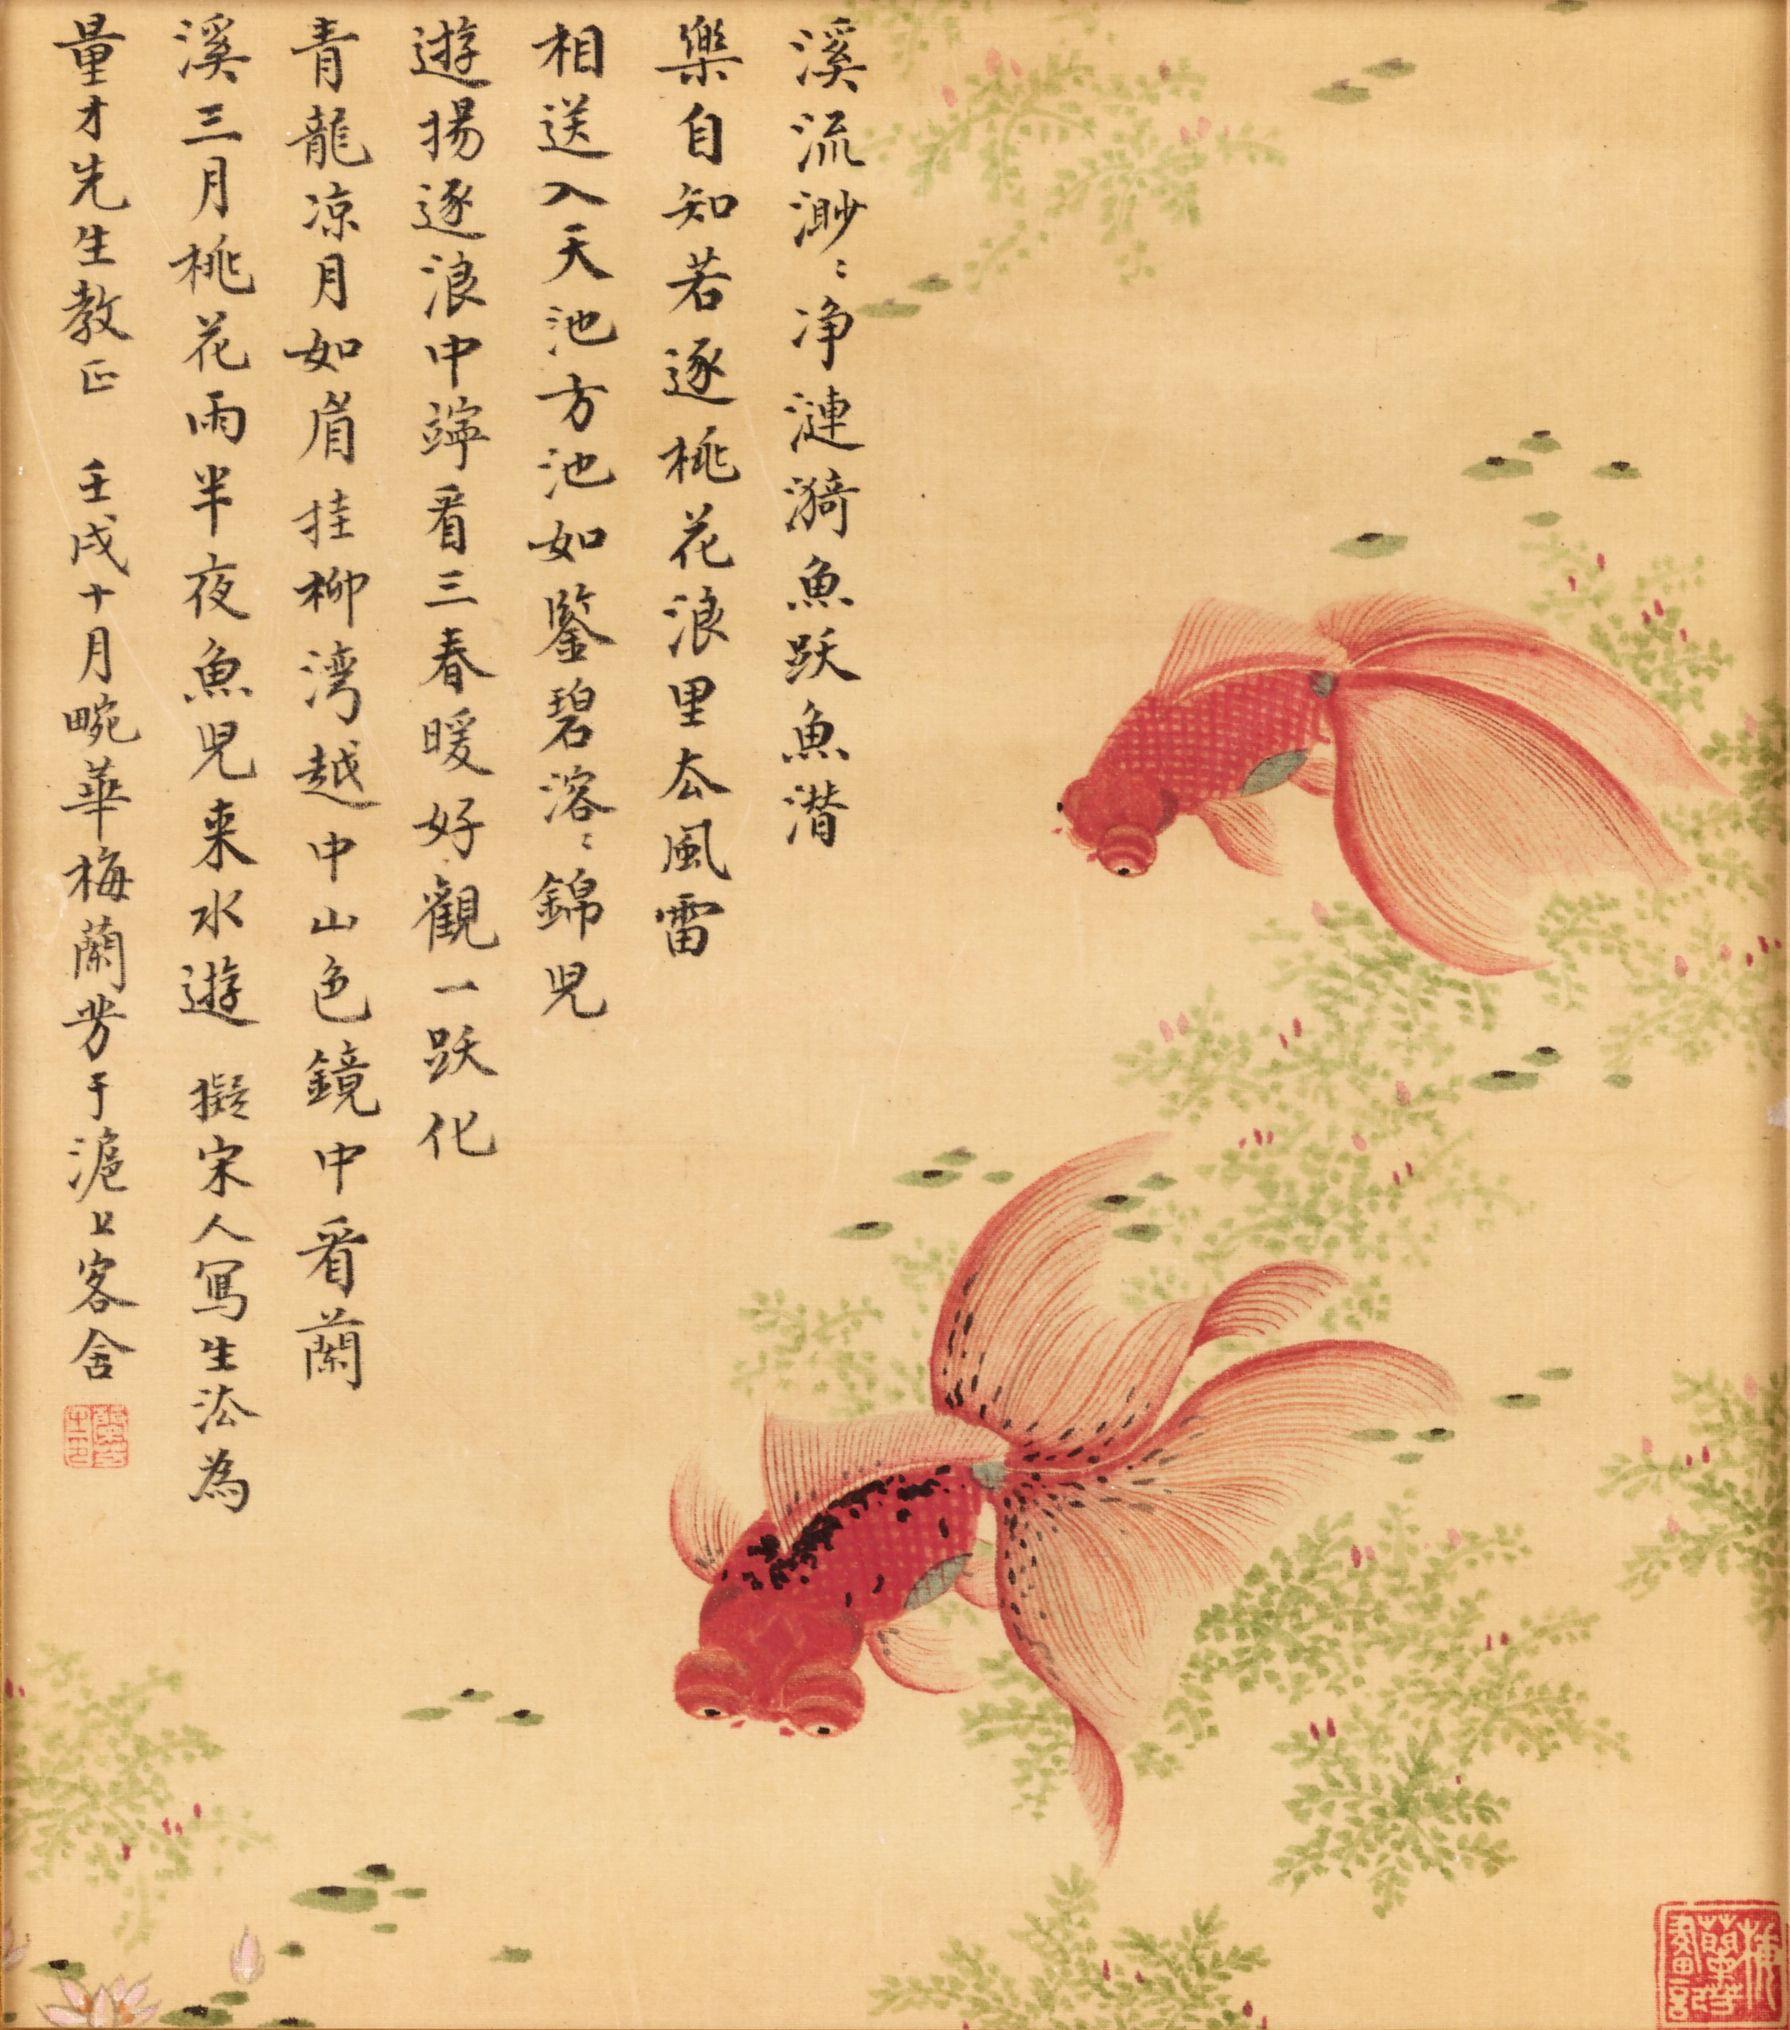 溪流渺：净漣漪魚跃魚潛
樂自知若逐桃花浪里去風雷
相送入天池方池如鑒碧溶：錦兒
遊揚逐浪中竚看三春暖好觀一跃化
青龍凉月如眉挂柳湾越中山色鏡中看蘭
溪三月桃花雨半夜魚兒来水遊 擬宋人寫生法為
量才先生教正 壬戌十月畹華梅蘭芳于滬上客舍